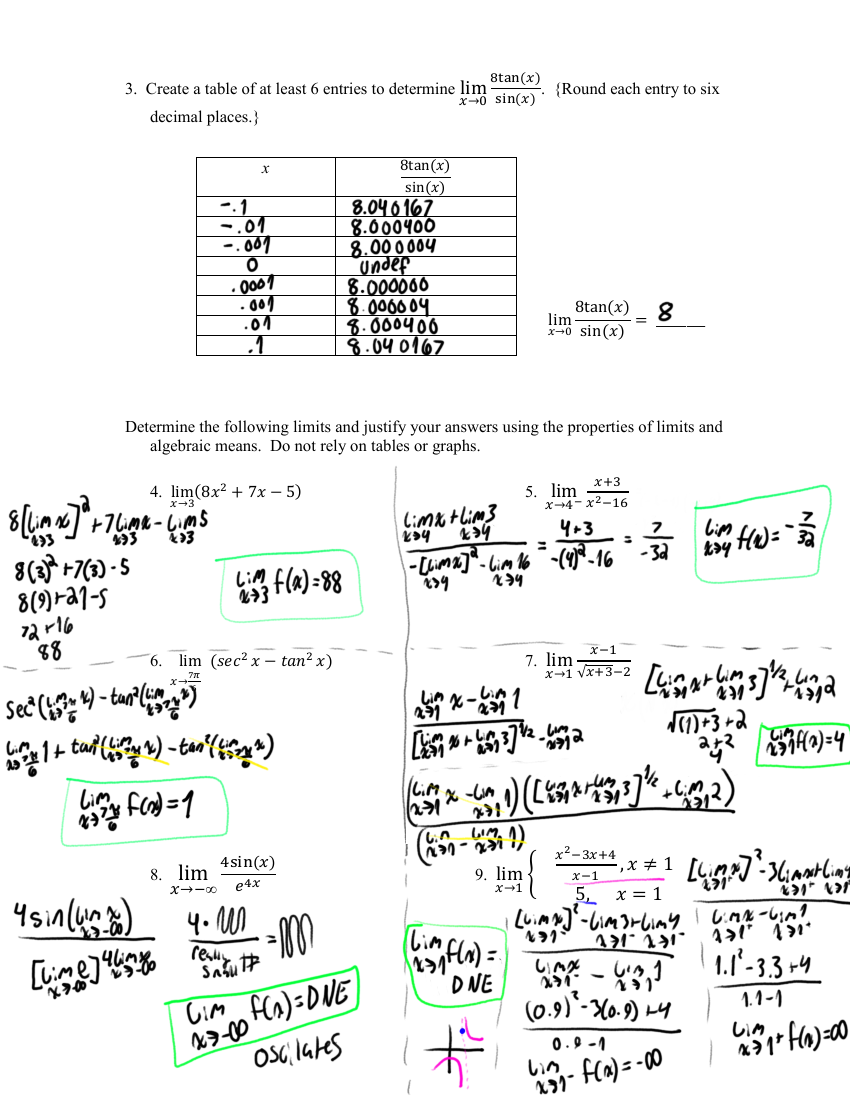 3. Create a table of at least 6 entries to determine lim x→0 8tan(x)/sin(x). {Round each entry to six
decimal places.}
x 8tan(x)/sin(x)
-.1 8.040167
-.01 8.000400
-.001 8.000004
0 undef
.0001 8.000000
.001 8.000004
.01 8.000400
.1 8.040167
lim x→0 8tan(x)/sin(x) = 8
Determine the following limits and justify your answers using the properties of limits and
algebraic means. Do not rely on tables or graphs.
4. lim x→3 (8x² + 7x − 5)
8[lim x→3 x]² + 7 lim x→3 x - lim x→3 5
8(3)² + 7(3) - 5
8(9) + 21 - 5
72 + 16
88
lim x→3 f(x) = 88
5. lim x→4⁻ x+3/x²−16
lim x→4 x + lim x→4 3 / -[lim x→4 x]² - lim x→4 16 = 4+3/-(4)²-16 = 7/-32
lim x→4 f(x) = -7/32
6. lim x→7π/6 (sec² x − tan² x)
sec²(lim x→7π/6 x) - tan²(lim x→7π/6 x)
lim x→7π/6 1 + tan²(lim x→7π/6 x) - tan²(lim x→7π/6 x)
lim x→7π/6 f(x) = 1
7. lim x→1 x−1/√x+3−2
lim x→1 x - lim x→1 1 / [lim x→1 x + lim x→1 3]^1/2 - lim x→1 2
(lim x→1 x - lim x→1 1)([lim x→1 x + lim x→1 3]^1/2 + lim x→1 2)
(lim x→1 - lim x→1 1)
[lim x→1 x + lim x→1 3]^1/2 + lim x→1 2
√(1)+3 + 2
2+2
4
lim x→1 f(x) = 4
8. lim x→−∞ 4sin(x)/e^4x
4sin(lim x→-∞ x) / [lim x→-∞ e]^4 lim x→-∞ x
4 ·
really small #
=
lim x→-∞ f(x) = DNE
oscilates
9. lim x→1 { x²−3x+4/x−1 , x ≠ 1
5, x = 1
lim x→1 f(x) = DNE
[lim x→1⁻ x]² - lim x→1⁻ 3 + lim x→1⁻ 4 / lim x→1⁻ x - lim x→1⁻ 1
(0.9)² - 3(0.9) + 4
0.9 - 1
lim x→1⁻ f(x) = -∞
[lim x→1⁺ x]² - 3 lim x→1⁺ x + lim x→1⁺ 4
lim x→1⁺ x - lim x→1⁺ 1
1.1² - 3.3 + 4
1.1 - 1
lim x→1⁺ f(x) = ∞